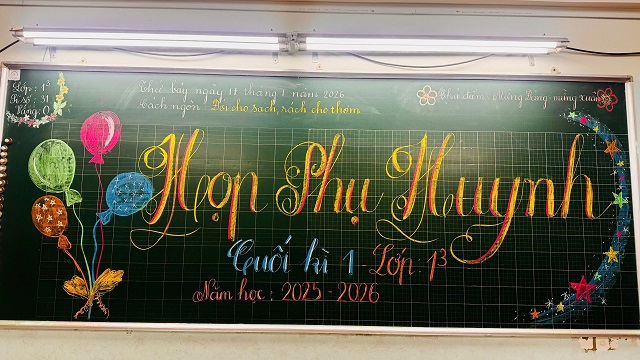 Lớp : 1³
Sĩ số : 31
Vắng : 0
Thứ bảy ngày tháng 1 năm 2026
Cách ngôn : Đói cho sạch, rách cho thơm.
Chủ điểm : Mừng Đảng - mừng Xuân
Họp Phụ Huynh
Cuối kì 1 Lớp 1³
Năm học : 2025 - 2026